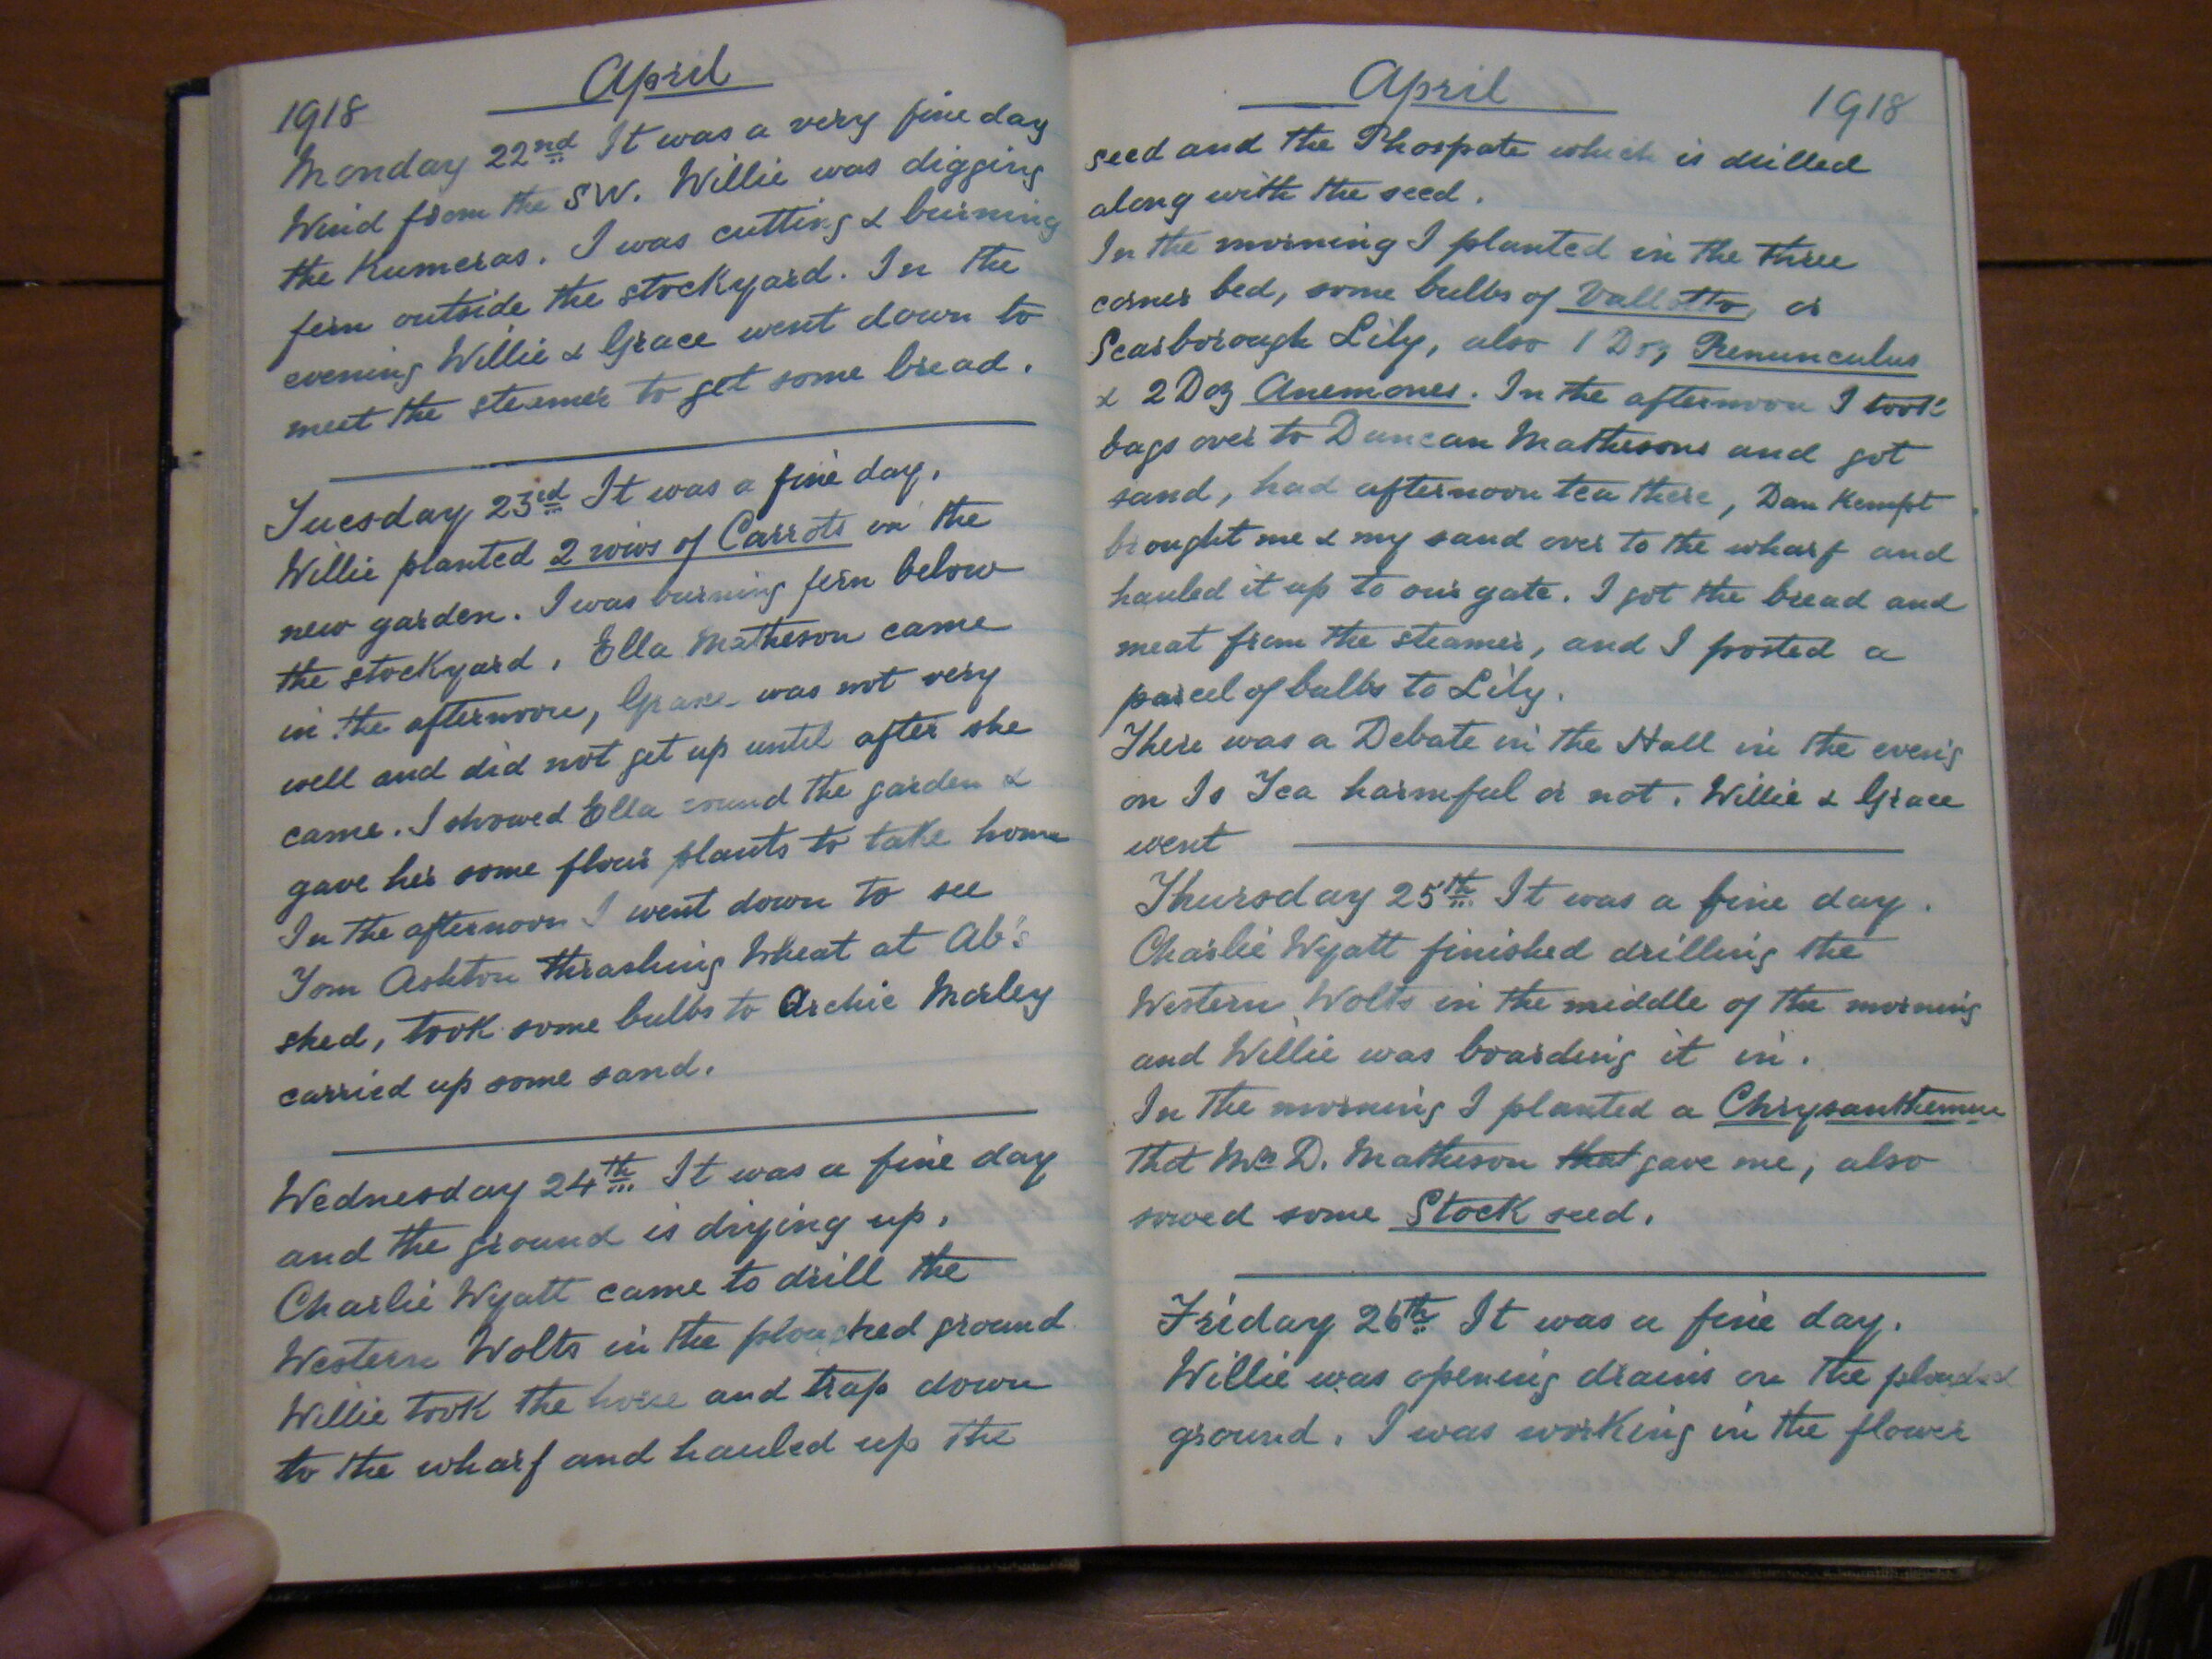 April
1918
Monday 22nd It was a very fine day
Wind from the SW. Willie was digging
the Kumeras. I was cutting & burning
fern outside the stockyard. In the
evening Willie & Grace went down to
meet the steamer to get some bread.
Tuesday 23rd It was a fine day.
Willie planted 2 rows of Carrots in the
new garden. I was burning fern below
the stockyard. Ella Matheson came
in the afternoon, Grace was not very
well and did not get up until after she
came. I showed Ella round the garden &
gave her some flowr plants to take home
In the afternoon I went down to see
Tom Ashton thrashing Wheat at Ab's
shed, took some bulbs to Archie Morley
carried up some sand.
Wednesday 24th It was a fine day
and the ground is drying up.
Charlie Wyatt came to drill the
Western Wolts in the ploughed ground
Willie took the horse and trap down
to the wharf and hauled up the
April
1918
seed and the Phospate which is drilled
along with the seed.
In the morning I planted in the three
corner bed, some bulbs of Vallotta, or
Scarborough Lily, also 1 Doz Renunculus
& 2 Doz Anemones. In the afternoon I took
bags over to Duncan Mathesons and got
sand, had afternoon tea there, Dan Kempt
brought me & my sand over to the wharf and
hauled it up to our gate. I got the bread and
meat from the steamer, and I posted a
parcel of bulbs to Lily.
There was a Debate in the Hall in the even'g
on Is Tea harmful or not. Willie & Grace
went
Thursday 25th It was a fine day.
Charlie Wyatt finished drilling the
Western Wolts in the middle of the morning
and Willie was boarding it in.
In the morning I planted a Chrysanthemum
that Mrs D. Matheson that gave me, also
sowed some Stock seed.
Friday 26th It was a fine day.
Willie was opening drains on the
ground. I was working in the flower